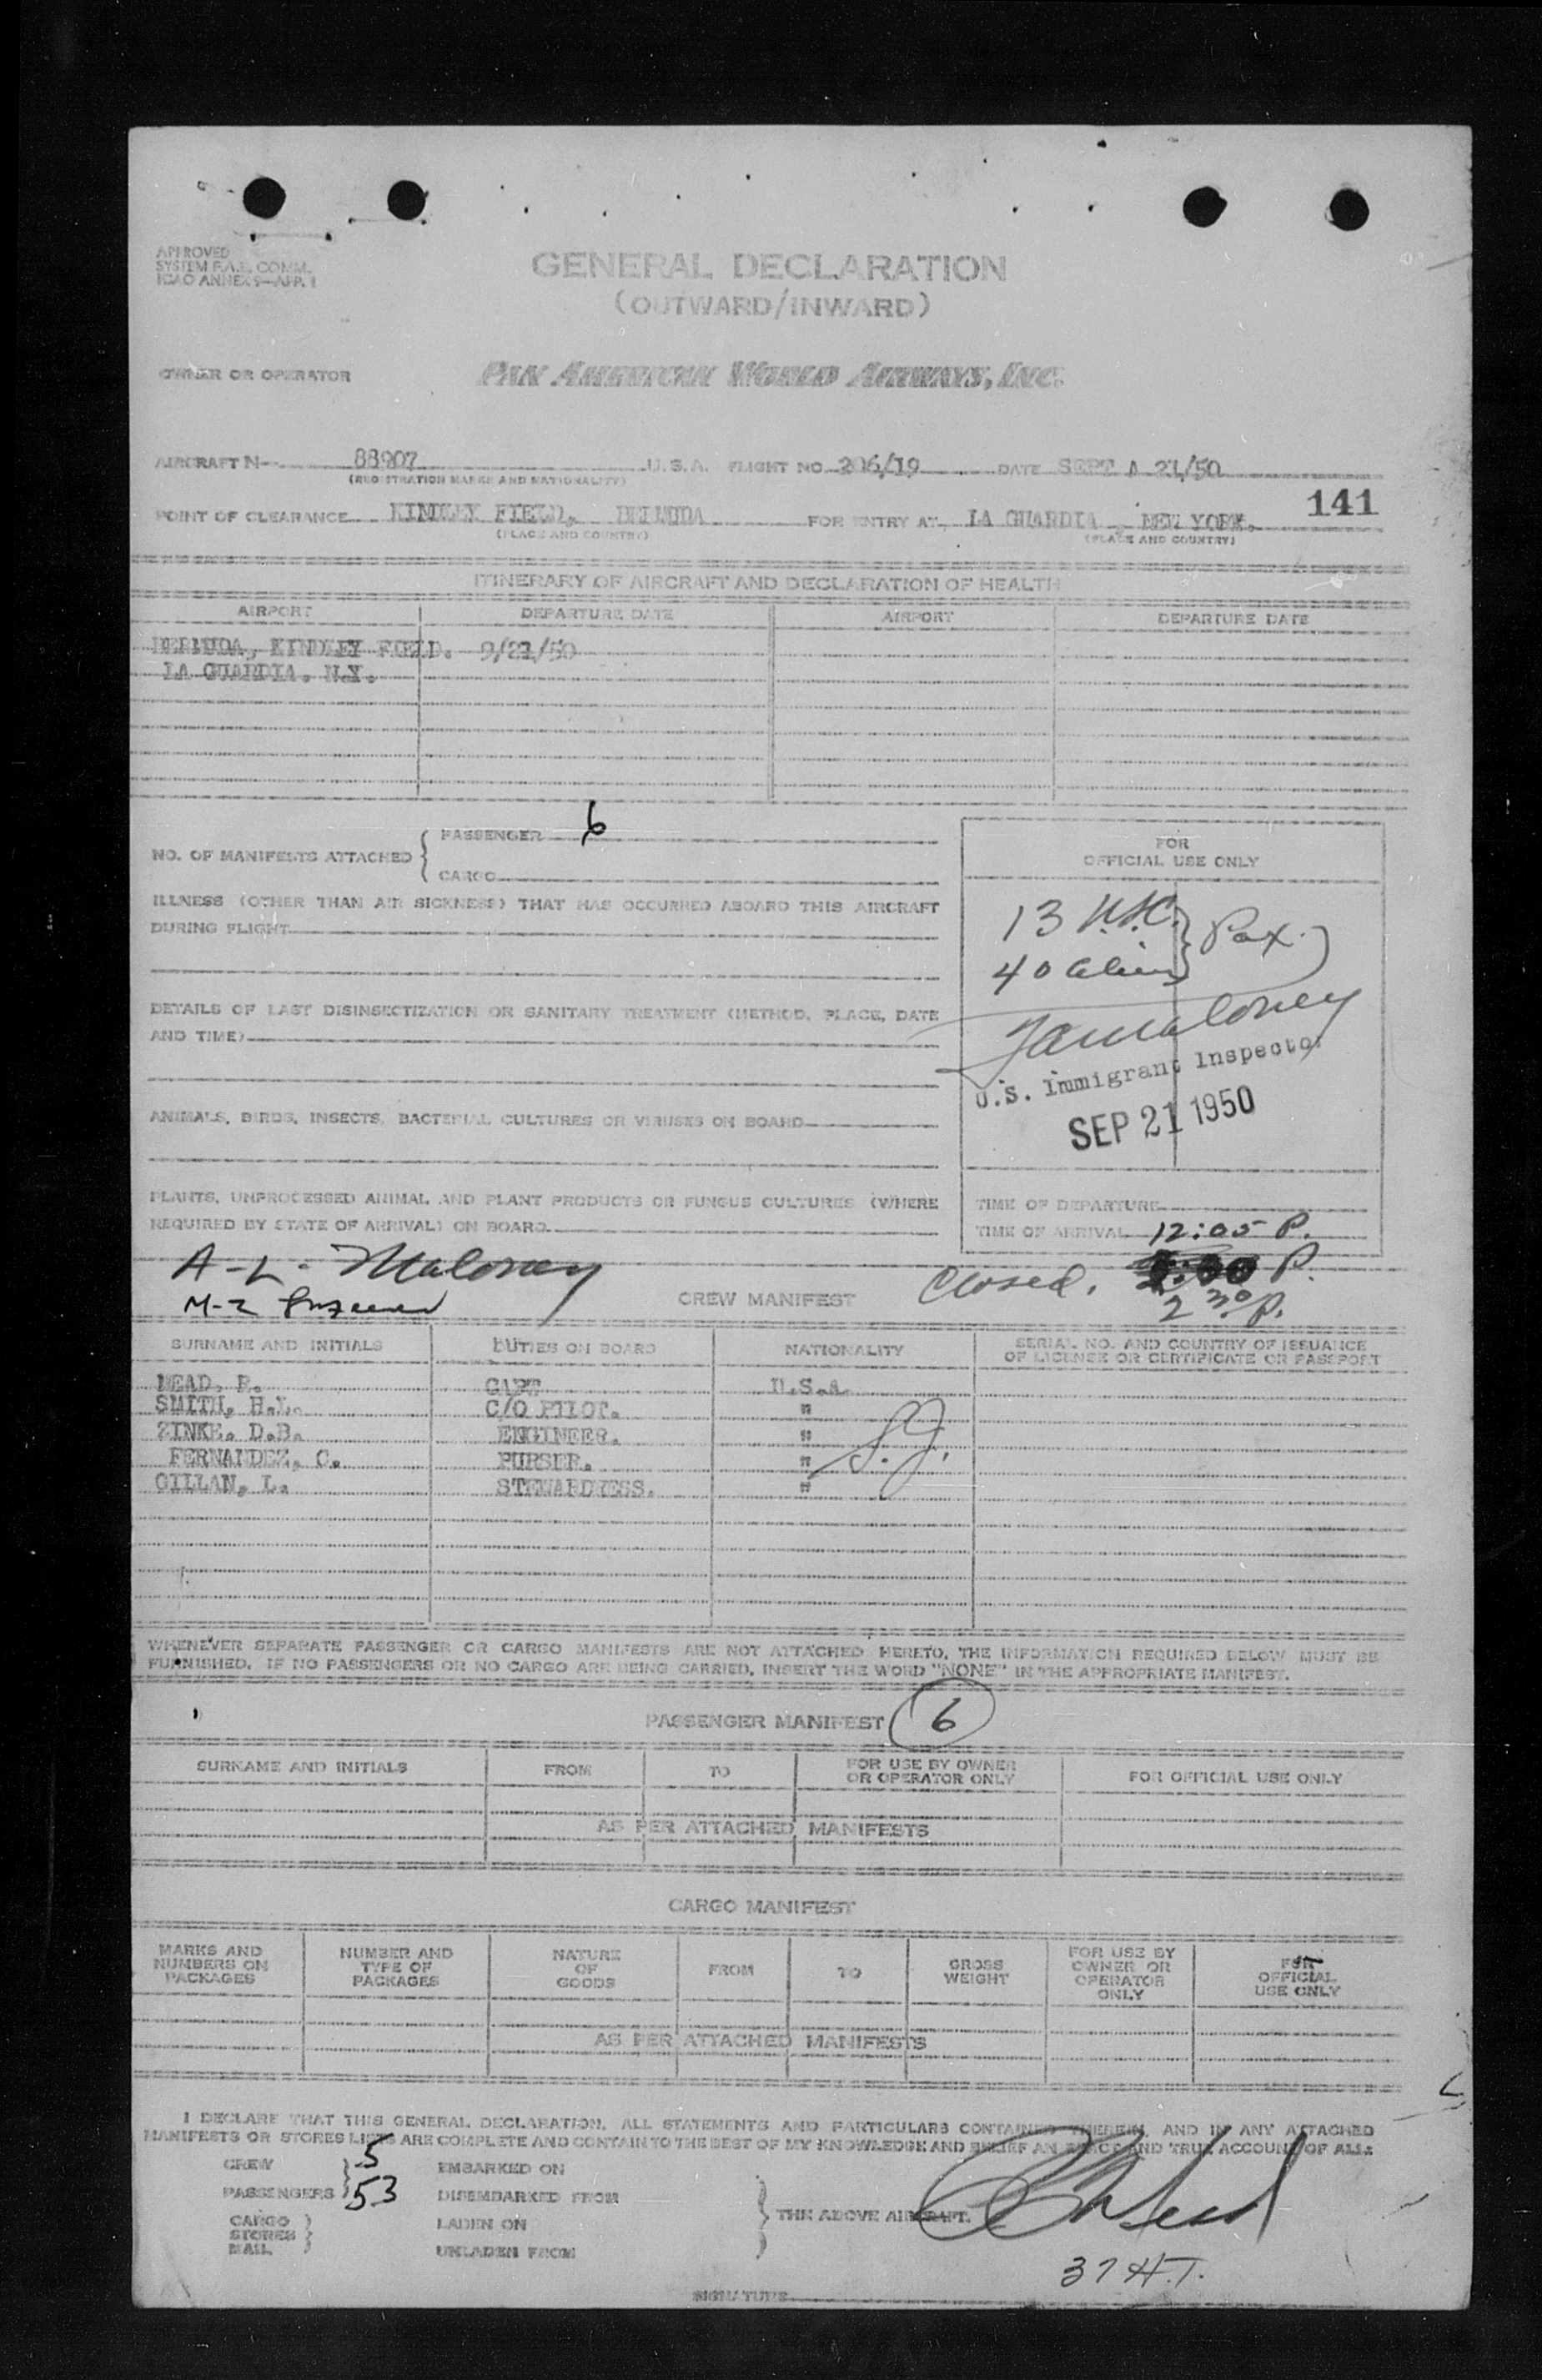 APPROVED
SYSTEM F.A.L. COMM.
ICAO ANNEX 9—APP. 1
GENERAL DECLARATION
(OUTWARD/INWARD)
OWNER OR OPERATOR
PAN AMERICAN WORLD AIRWAYS, INC.
AIRCRAFT N- 88907 U.S.A. FLIGHT NO. 206/19 DATE SEPT 21/50
(REGISTRATION MARKS AND NATIONALITY)
141
POINT OF CLEARANCE KINDLEY FIELD, BERMUDA FOR ENTRY AT LA GUARDIA, NEW YORK.
(PLACE AND COUNTRY) (PLACE AND COUNTRY)
ITINERARY OF AIRCRAFT AND DECLARATION OF HEALTH
AIRPORT DEPARTURE DATE AIRPORT DEPARTURE DATE
BERMUDA, KINDLEY FIELD. 9/21/50
LA GUARDIA. N.Y.
NO. OF MANIFESTS ATTACHED { PASSENGER 6
CARGO
FOR
OFFICIAL USE ONLY
ILLNESS (OTHER THAN AIR SICKNESS) THAT HAS OCCURRED ABOARD THIS AIRCRAFT
DURING FLIGHT
13 U.S.C. } Pax.
40 Alien
DETAILS OF LAST DISINSECTIZATION OR SANITARY TREATMENT (METHOD, PLACE, DATE
AND TIME)
Maloney
U.S. Immigrant Inspector
SEP 21 1950
ANIMALS, BIRDS, INSECTS, BACTERIAL CULTURES OR VIRUSES ON BOARD
PLANTS, UNPROCESSED ANIMAL AND PLANT PRODUCTS OR FUNGUS CULTURES (WHERE
REQUIRED BY STATE OF ARRIVAL) ON BOARD
TIME OF DEPARTURE
TIME OF ARRIVAL 12:05 P.
A-L- Maloney
M-Z
Closed. P.
2 30 P.
CREW MANIFEST
SURNAME AND INITIALS DUTIES ON BOARD NATIONALITY SERIAL NO. AND COUNTRY OF ISSUANCE
OF LICENSE OR CERTIFICATE OR PASSPORT
MEAD, R. CAPT U.S.A.
SMITH, H.L. C/O PILOT. "
ZINKE. D.B. ENGINEER. "
FERNANDEZ, C. PURSER. "
GILLAN, L. STEWARDRESS. "
WHENEVER SEPARATE PASSENGER OR CARGO MANIFESTS ARE NOT ATTACHED HERETO, THE INFORMATION REQUIRED BELOW MUST BE
FURNISHED. IF NO PASSENGERS OR NO CARGO ARE BEING CARRIED, INSERT THE WORD "NONE" IN THE APPROPRIATE MANIFEST.
PASSENGER MANIFEST 6
SURNAME AND INITIALS FROM TO FOR USE BY OWNER
OR OPERATOR ONLY FOR OFFICIAL USE ONLY
AS PER ATTACHED MANIFESTS
CARGO MANIFEST
MARKS AND
NUMBERS ON
PACKAGES
NUMBER AND
TYPE OF
PACKAGES
NATURE
OF
GOODS
FROM
TO
GROSS
WEIGHT
FOR USE BY
OWNER OR
OPERATOR
ONLY
FOR
OFFICIAL
USE ONLY
AS PER ATTACHED MANIFESTS
I DECLARE THAT THIS GENERAL DECLARATION, ALL STATEMENTS AND PARTICULARS CONTAINED THEREIN, AND IN ANY ATTACHED
MANIFESTS OR STORES LISTS ARE COMPLETE AND CONTAIN TO THE BEST OF MY KNOWLEDGE AND BELIEF AN EXACT AND TRUE ACCOUNT OF ALL:
CREW 5 EMBARKED ON
PASSENGERS 53 DISEMBARKED FROM
CARGO
STORES
MAIL
LADEN ON
UNLADEN FROM
THE ABOVE AIRCRAFT.
37 H.T.
SIGNATURE